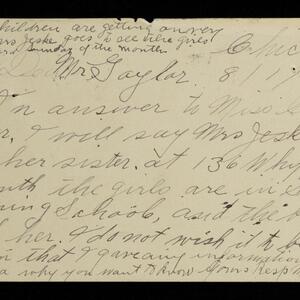 children are getting on very
Mrs Jeske goes to see the girls
Sunday of the month
Chic
Mr Gaylor 8 17
In answer to Miss
I will say Mrs Jeske
her sister. at 136 Why
the girls are in
ing School, and the
her. I do not wish it to b
that I gave any information
why you want to know Yours Resp